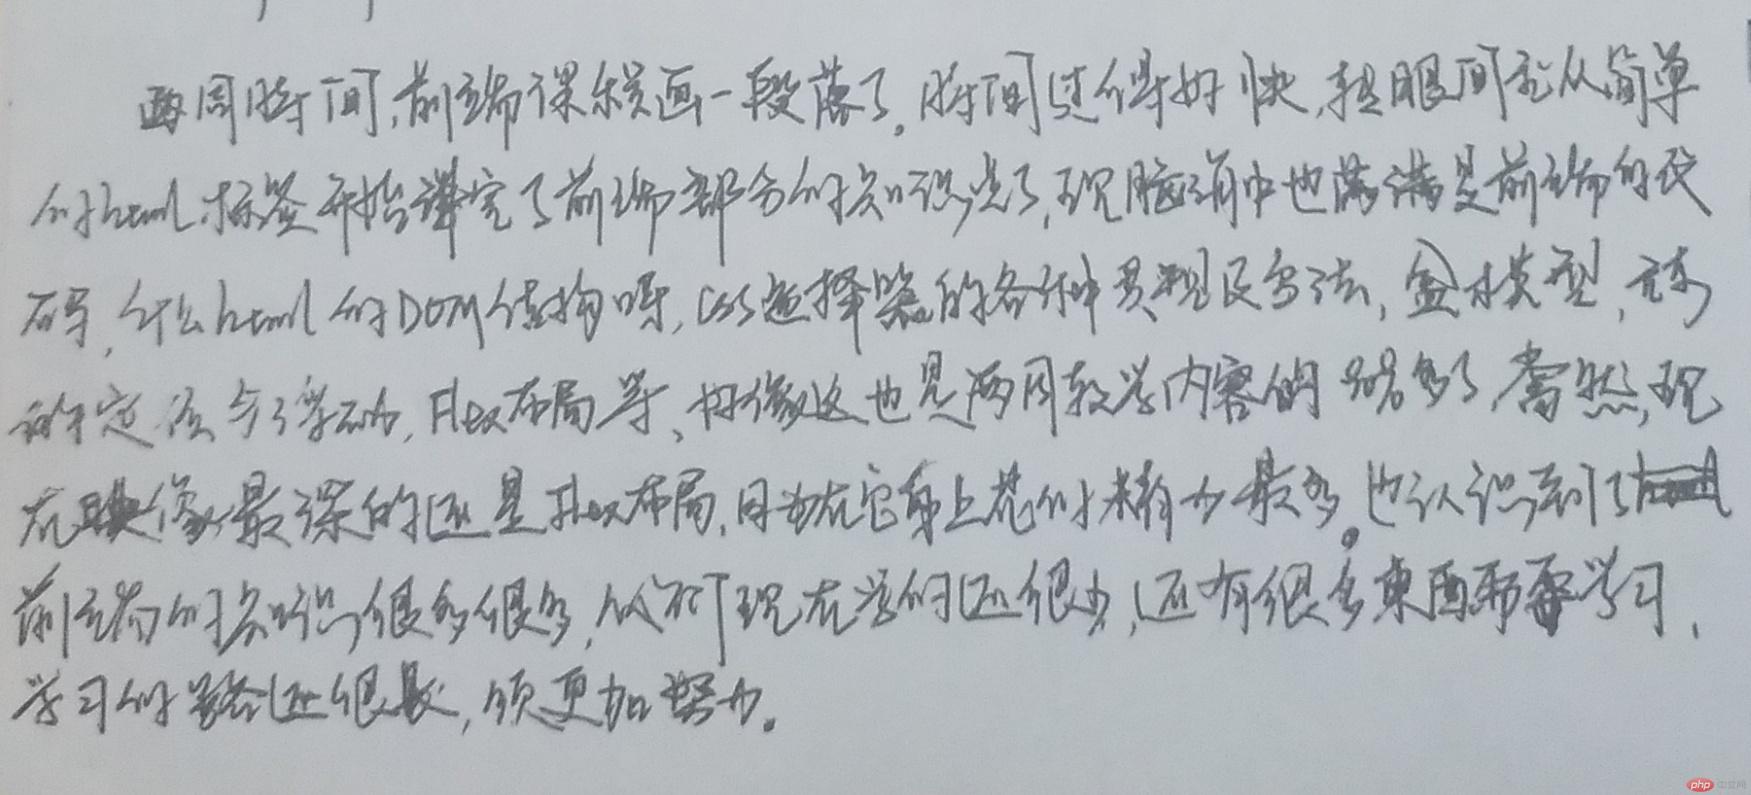 两周时间,前端课程画一段落了。时间过得好快,转眼间就从简单
的html标签开始讲完了前端部分的知识点了,现脑海中也满满是前端的代
码,什么html的DOM结构呀,css选择器的各种类型及写法,盒模型,元素
的定位与浮动,Flex布局等、好像这也是两周教学内容的 多了,当然,现
在映像最深的还是flex布局,因为在它身上花的精力最多。也认识到了
前端的知识很多很多,从而现在学的还很少,还有很多東西需要学习,
学习的路还很长,须更加努力。
php 中文网